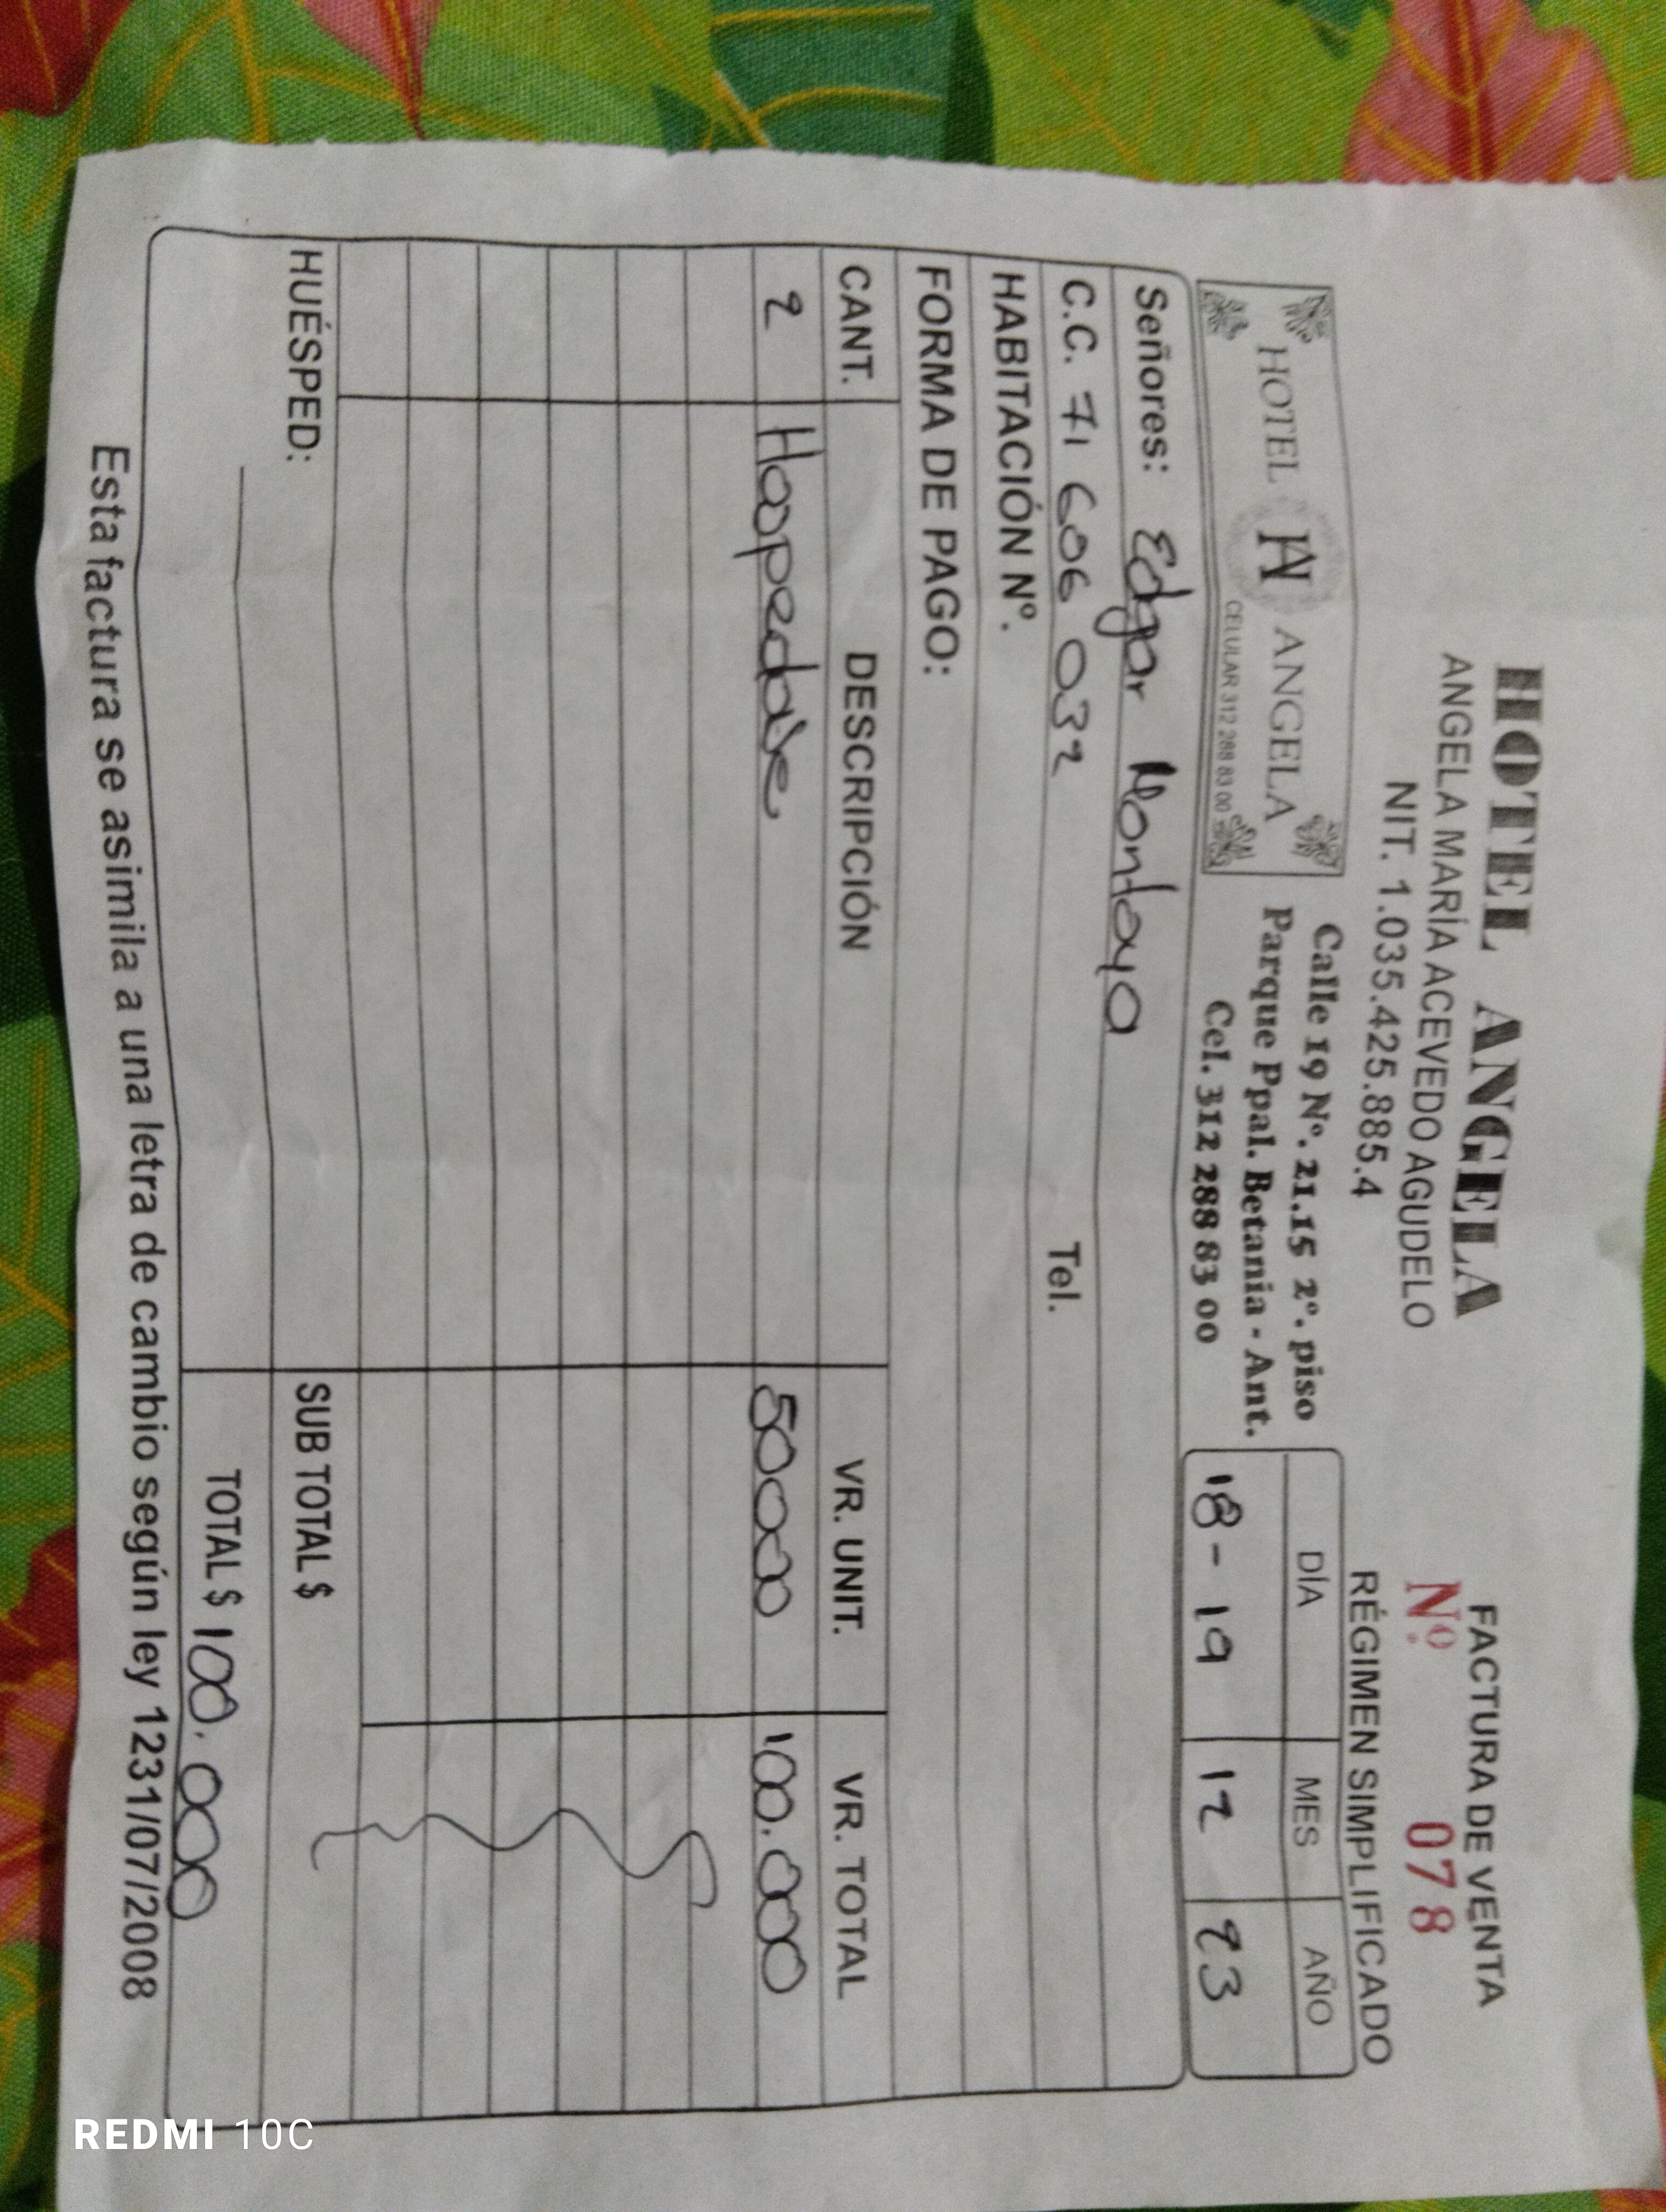 HOTEL ANGELA
ANGELA MARÍA ACEVEDO AGUDELO
NIT. 1.035.425.885.4
FACTURA DE VENTA
Nº. 078
RÉGIMEN SIMPLIFICADO
HOTEL HA ANGELA
CELULAR 312 288 83 00
Calle 19 Nº. 21.15 2º. piso
Parque Ppal. Betania - Ant.
Cel. 312 288 83 00
DÍA MES AÑO
18-19 12 23
Señores: Edgar Montoya
C.C. 71 606 032 Tel.
HABITACIÓN Nº.
FORMA DE PAGO:
CANT. DESCRIPCIÓN VR. UNIT. VR. TOTAL
2 Hospedaje 50000 100.000
SUB TOTAL $
HUÉSPED:
TOTAL $ 100.000
Esta factura se asimila a una letra de cambio según ley 1231/07/2008
REDMI 10C